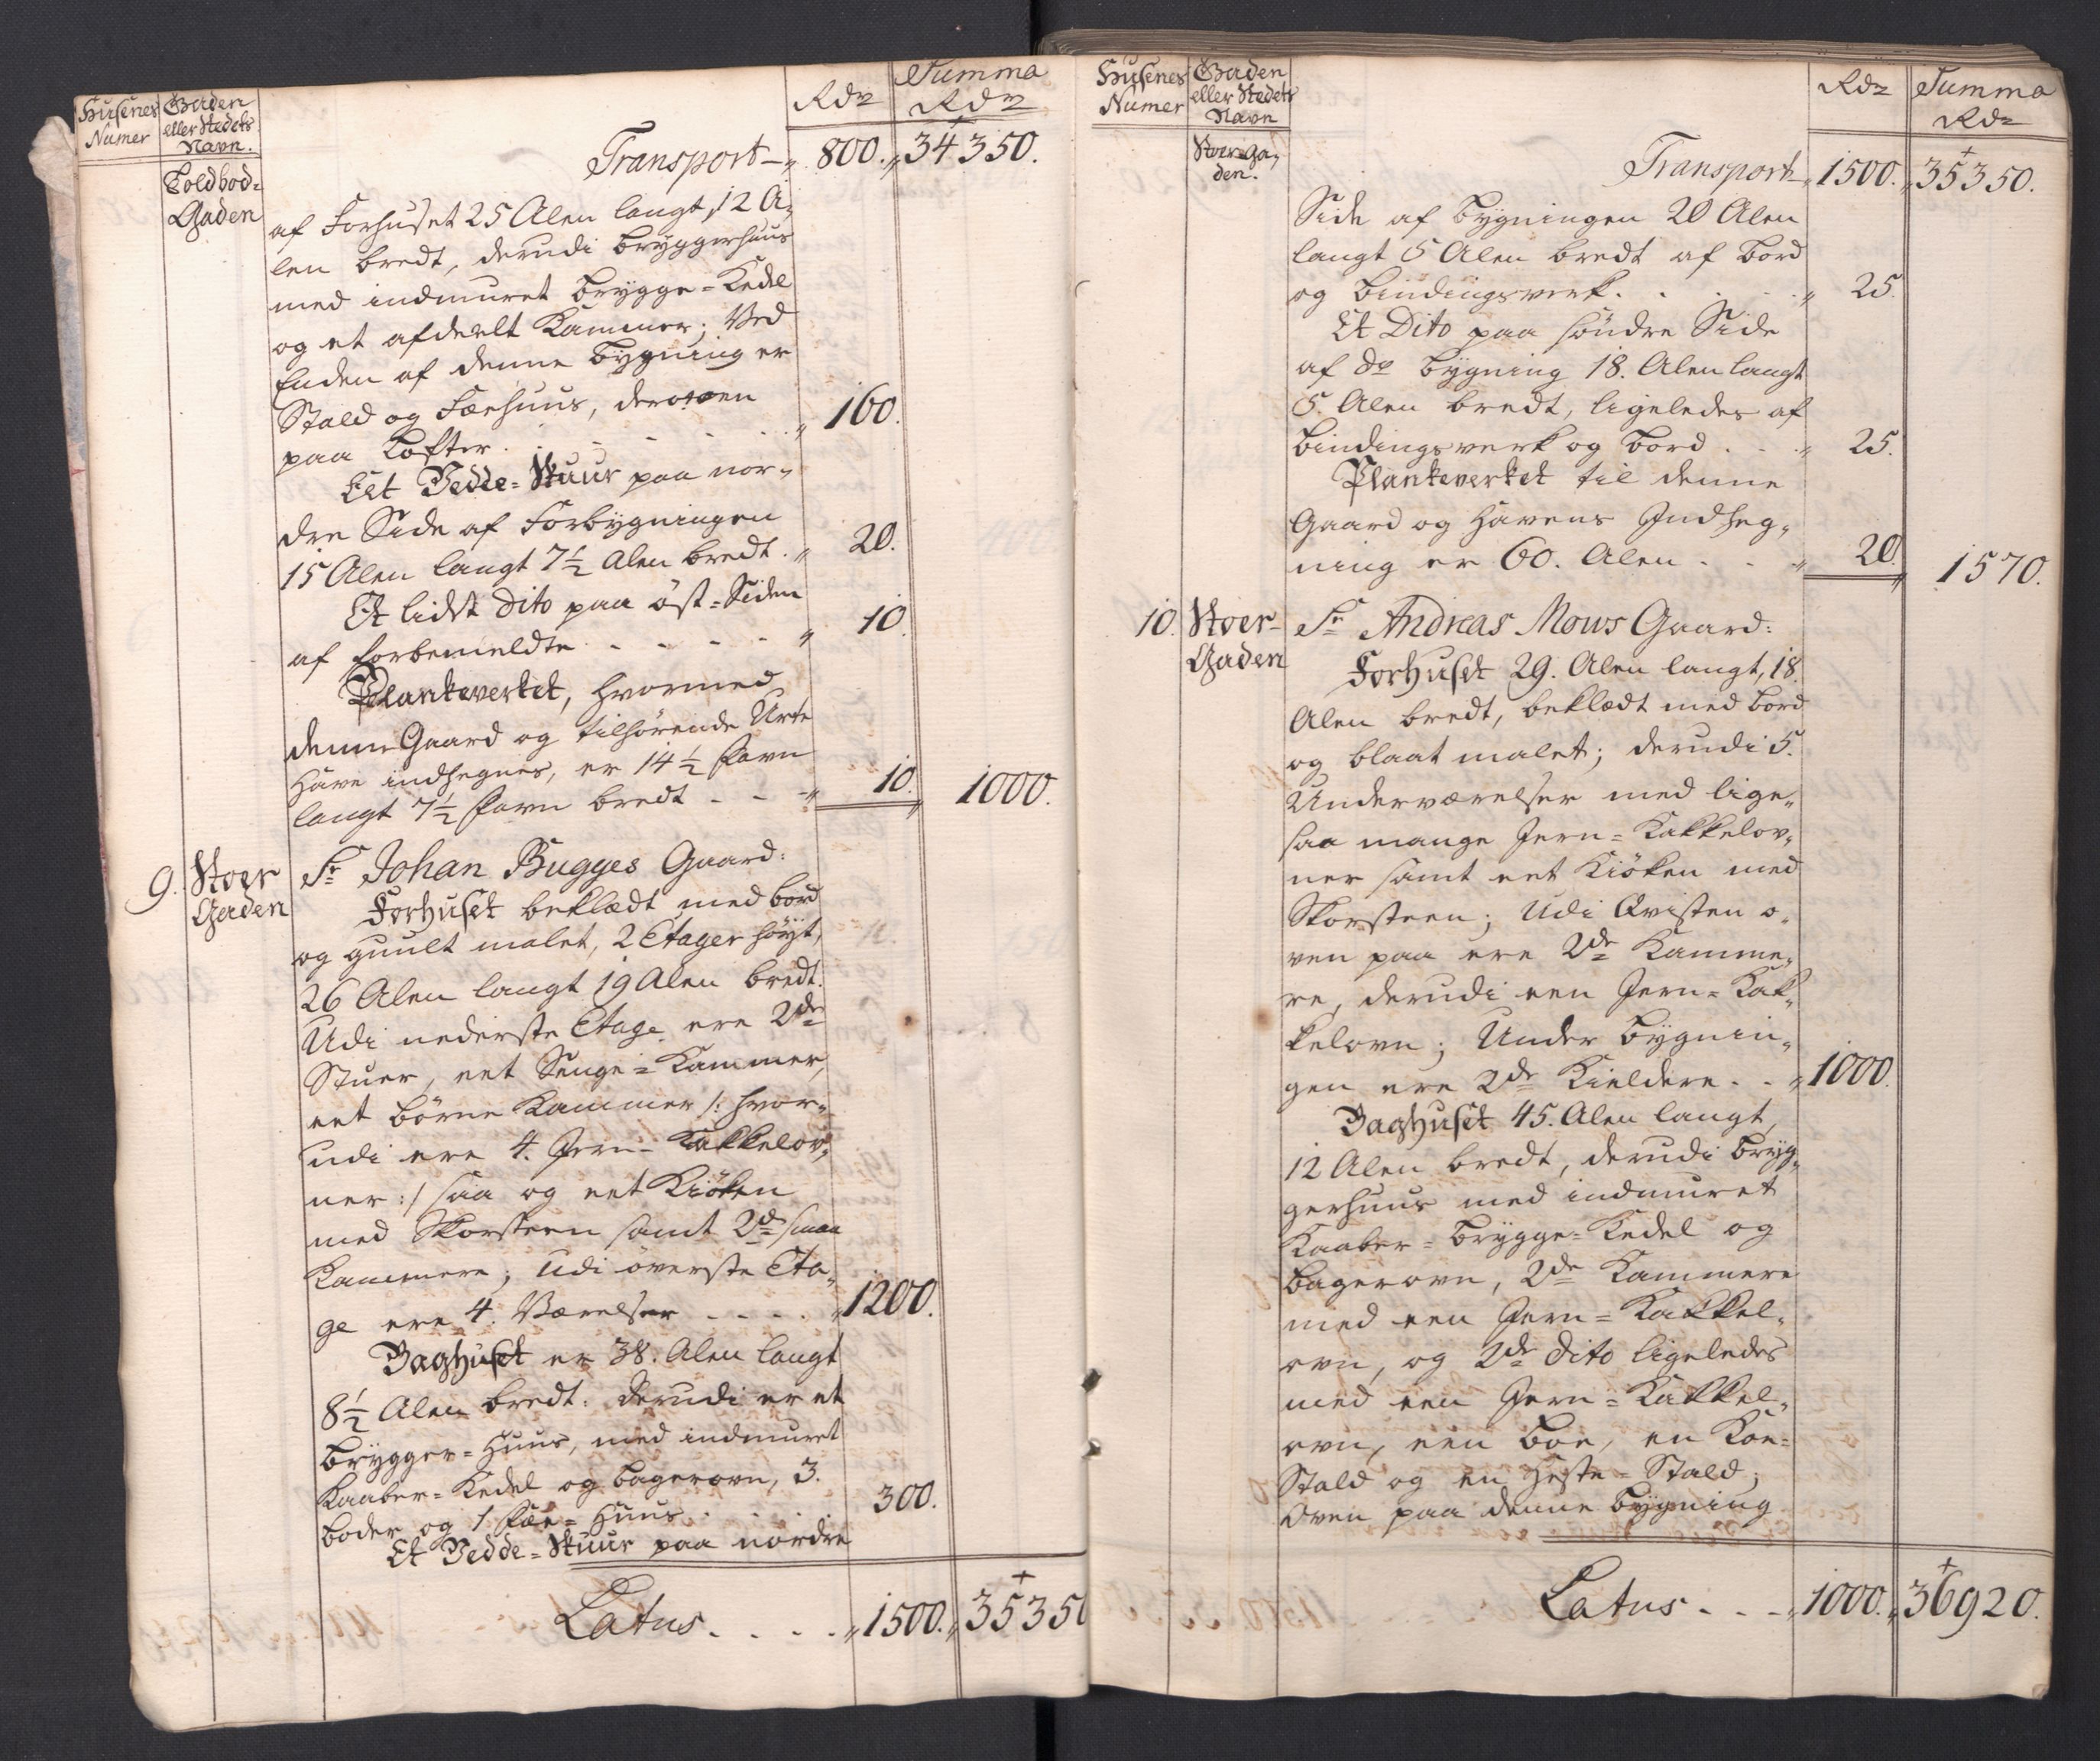 Husenes Gaden Rdr Summa
Numer eller Stedets Rdr
Navn.
Transport - „ 800. „ 34350.
Toldbod=
Gaden
af Forhuset 25 Alen langt, 12 A„
len bredt, derudi Bryggerhuus
med indmuret Brygge=Kedel
og et afdeelt Kammer; Ved
Enden af denne Bygning er
Stald og Fæehuus, deroven
paa Lofter . . - - . . „ 160.
Eet Vedde=Skuur paa nor„
dre Side af Forbygningen
15 Alen langt 7½ Alen bredt . „ 20.
Et lidet Dito paa öst=Siden
af forbemeldte . - - - - „ 10.
Plankeverket, hvormed
denne Gaard og tilhörende Urte
Have indhegnes, er 14½ Favn
langt 7½ Favn bredt - - - „ 10. „ 1000.
9. Stoer Sr Johan Bugges Gaard:
Gaden Forhuset beklædt med bord
og guult malet, 2 Etager höyt,
26 Alen langt 19 Alen bredt.
Udi nederste Etage ere 2de
Stuer, eet Senge=Kammer,
eet börne Kammer /: hvor„
udi ere 4. Jern=Kakkelov„
ner :/ saa og eet Kiöken
med Skorsteen samt 2de smaa
Kammere; Udi överste Eta„
ge ere 4. Værelser - - - . „ 1200.
Baghuset er 38. Alen langt
8½ Alen bredt: derudi er et
Brygger=Huus, med indmuret
Kaaber=Kedel og bagerovn, 3.
boder og 1 Fæe=Huus . . . . 300.
Et Vedde=Skuur paa nordre
Latus . . . . „ 1500. „ 35350
Husenes Gaden Rdr Summa
Numer eller Stedets Rdr
Navn
Stoer Ga„
den. Transport - „ 1500. „ 35350.
Side af Bygningen 20 Alen
langt 5 Alen bredt af Bord
og Bindingsverk . . . . „ 25.
Et Dito paa söndre Side
af do Bygning 18. Alen langt
5. Alen bredt, ligeledes af
Bindingsverk og Bord . . . „ 25.
Plankeverket til denne
Gaard og Havens Indheg„
ning er 60. Alen . . . „ 20. „ 1570.
10. Stoer- Sr Andreas Mows Gaard:
Gaden Forhuset 29. Alen langt, 18.
Alen bredt, beklædt med bord
og blaat malet; derudi 5.
Underværelser med lige„
saa mange Jern=Kakkelov„
ner samt eet Kiöken med
Skorsteen; Udi Qvisten o„
ven paa ere 2de Kamme„
re, derudi een Jern=Kak„
kelovn; Under Bygnin„
gen ere 2de Kieldere . . „ 1000.
Baghuset 45. Alen langt,
12 Alen bredt, derudi Bryg„
gerhuus med indmuret
Kaaber=Brygge=Kedel og
bagerovn, 2de Kammere
med een Jern=Kakkel„
ovn, og 2de Dito ligeledes
med een Jern=Kakkel„
ovn, een Boe, en Koe=
Stald og en Heste=Stald;
Oven paa denne Bygning
Latus . . . „ 1000. „ 36920.